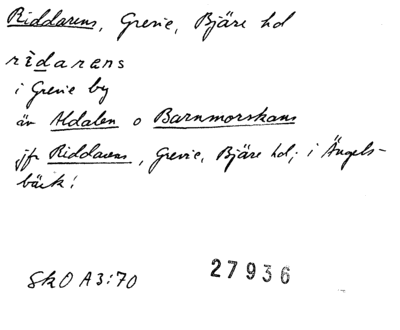 Riddarens, Grevie, Bjäre hd
rìdarens
i Grevie by
äv Aldalen o Barnmorskans
jfr Riddarens, Grevie, Bjäre hd; i Ängels-
bäck!
SkO A3:70
27936